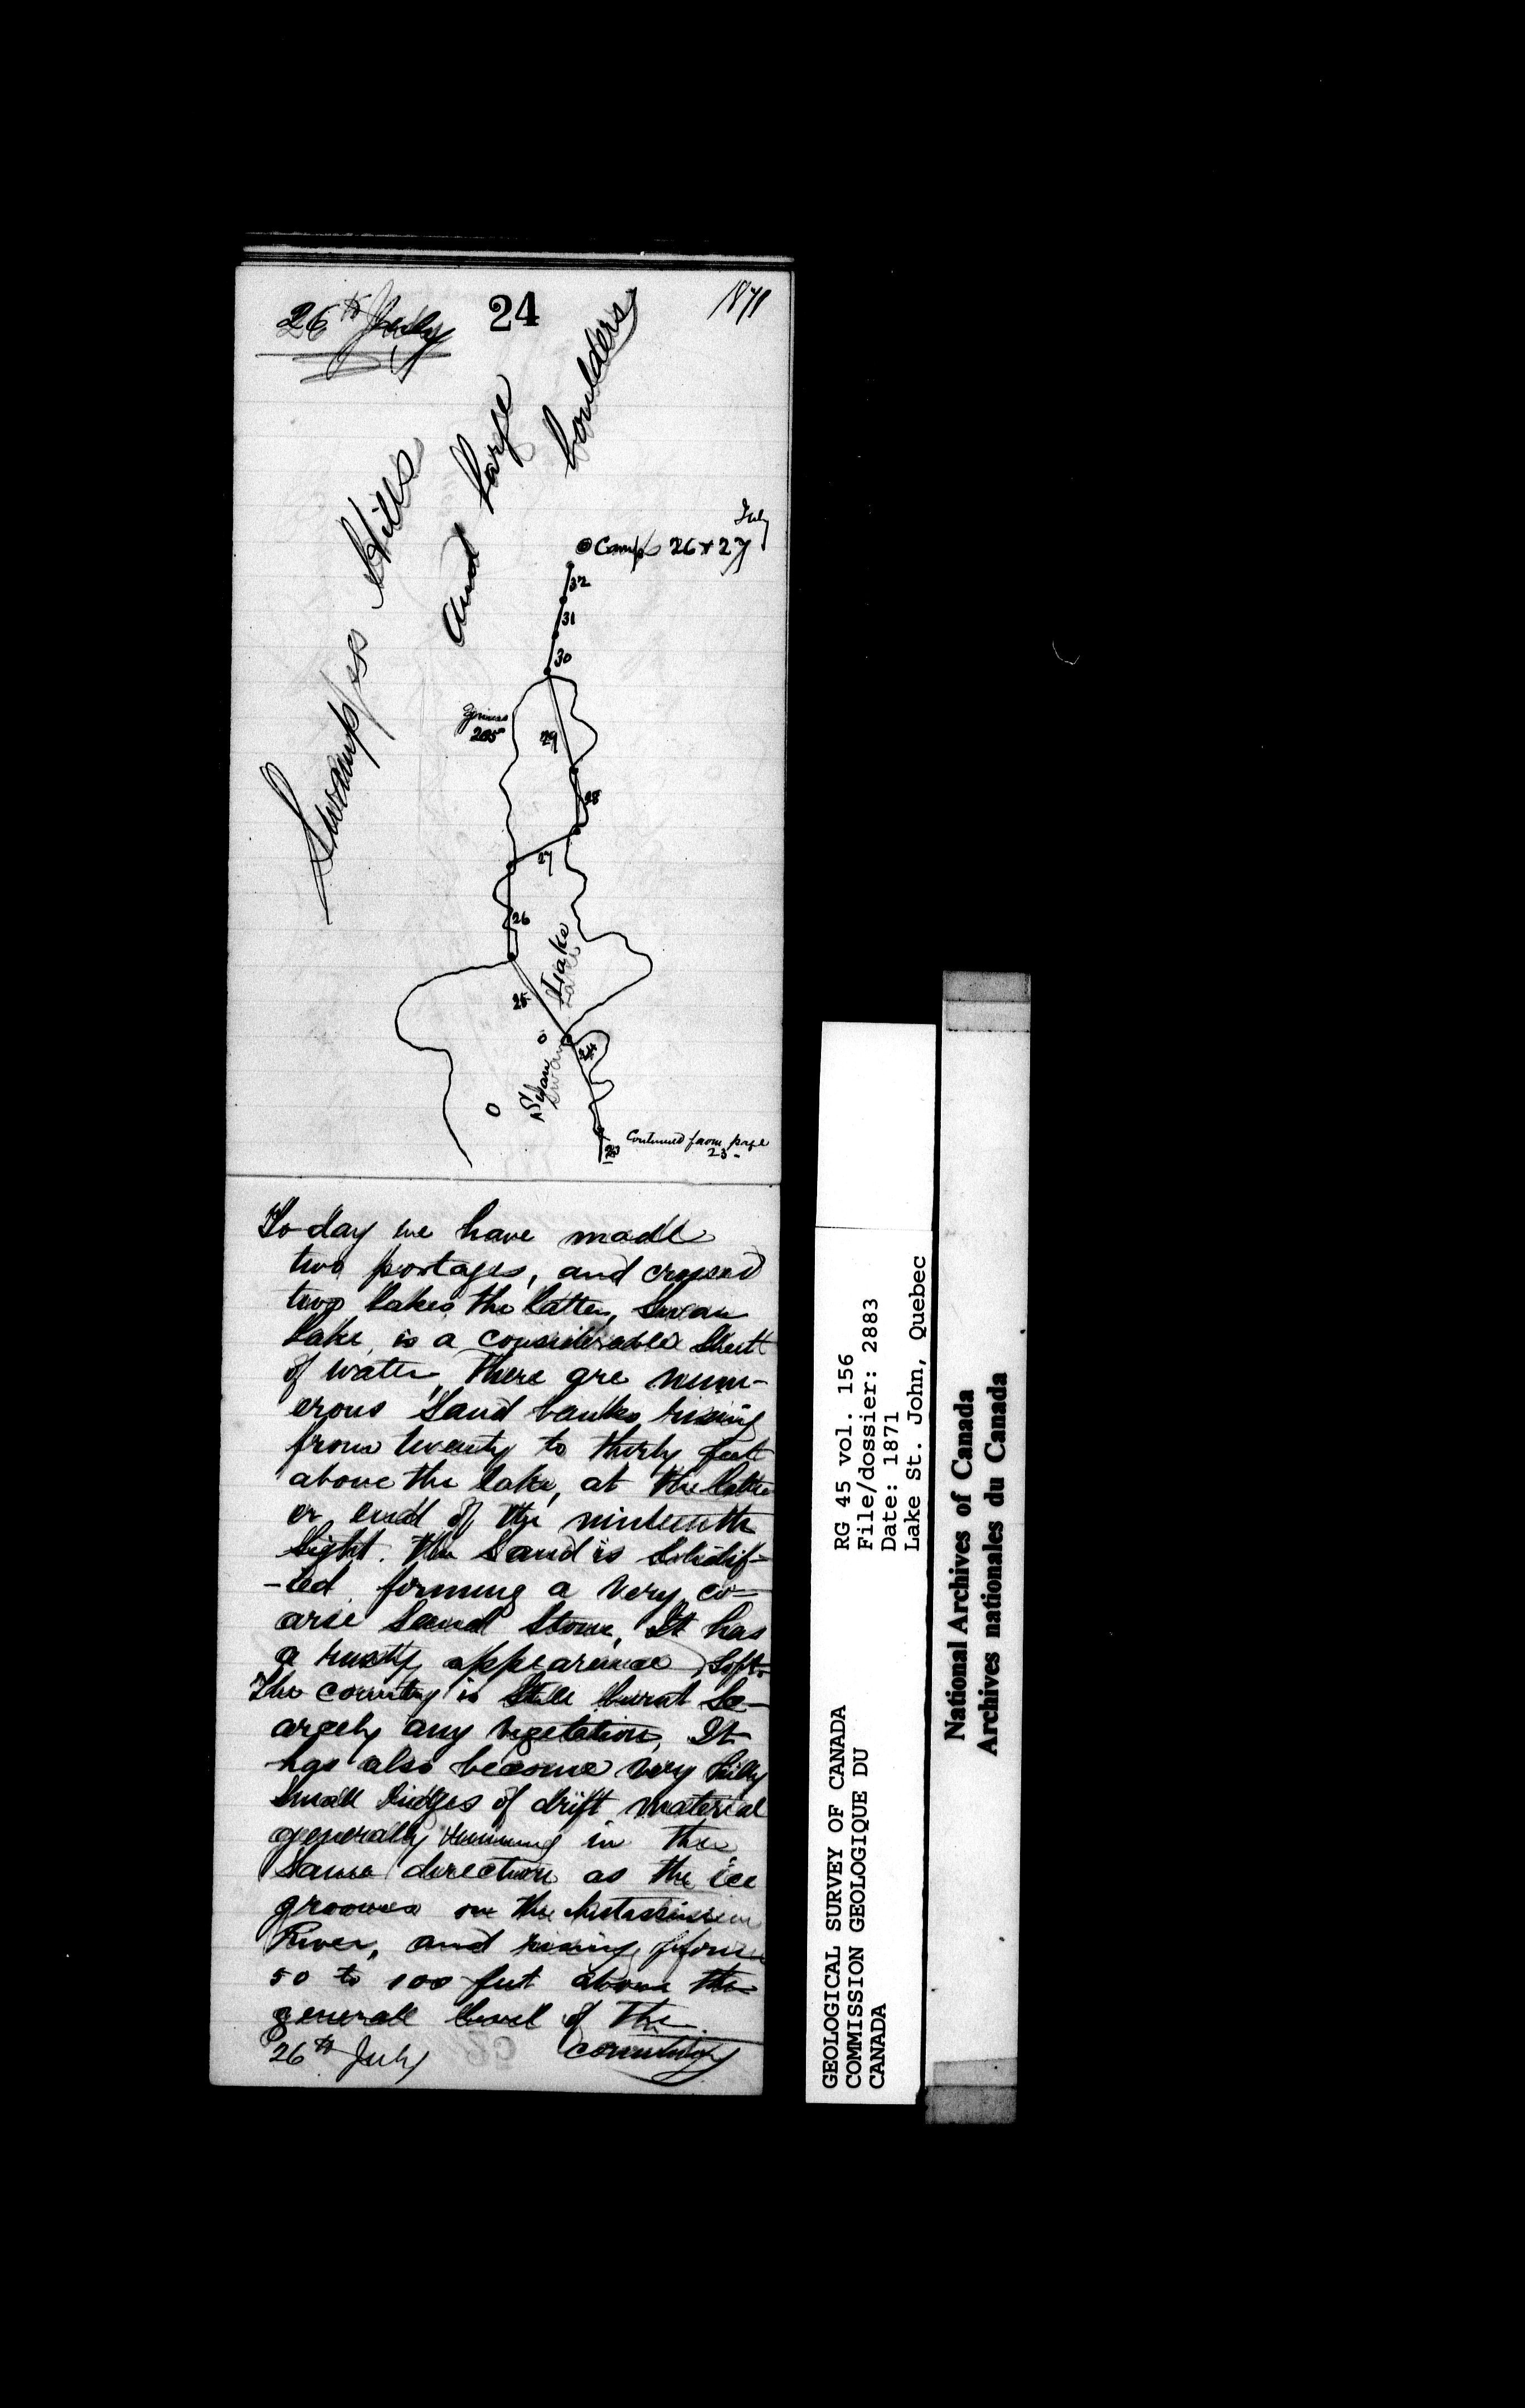 26th July
24
1871
Swamps Hills
and large
boulders
July
Camps 26 & 27
32
31
30
29
205
28
27
26
Lake
25
Swan
24
23
Continued from page
23-
To-day we have made
two portages, and crossed
two lakes the latter, Swan
Lake, is a considerable sheet
of water, There are num-
erous sand banks rising
from twenty to thirty feet
above the lake, at the latt
er end of the ninteenth
sight. the sand is solidif-
-ied forming a very co-
arse sand stone, It has
a rusty appearance, soft.
The country is still burnt Sc-
arcely any vegetation, It
has also become very hilly
small ridges of drift material
generally running in the
same direction as the ice
grooves on the Mistassinni
River, and rising from
50 to 100 feet above the
generall level of the
country
26th July
GEOLOGICAL SURVEY OF CANADA
COMMISSION GEOLOGIQUE DU
CANADA
RG 45 vol. 156
File/dossier: 2883
Date: 1871
Lake St. John, Quebec
National Archives of Canada
Archives nationales du Canada